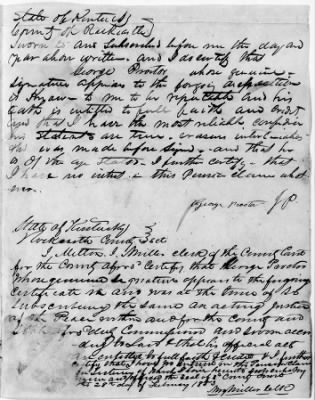 State of Kentucky
County of Rockcastle
Sworn to and Subscribed before me the day and
year above written. and I certify that
George Proctor whose genuine
signature appears to the forgoing
is known to me to be reputable and his
oath is entitled to full faith and credit
and that I have the most reliable confidence
his statements are true.
was made before signing. and that he
is of the age stated. I further certify that
I have no interest in this Pension claim what
ever.
George Proctor J P.
State of Kentucky
Rockcastle County Sct
I Milton J Miller clerk of the County Court
for the County aforesd Certify that George Proctor
whose genuine signature appears to the foregoing
Certificate is and was at the time of
Subscribing the same an acting Justice
of the Peace within and for the County and
State aforesd duly Commissioned and sworn accor
ding to law & that his official acts
are entitled to full faith & credit & I further
certify that
In testimony of which I have hereunto
and affixed the seal of sd County Court
this 28th day of February 1883
M J Miller Clk